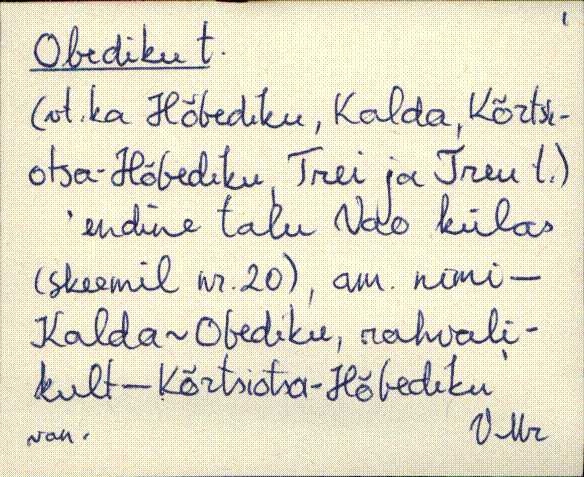 1
Obediku t.
(vt. ka Hõbediku, Kalda, Kõrtsi-
otsa-Hõbediku, Trei ja Treu t.)
'endine talu Vao külas
(skeemil nr. 20), am. nimi—
Kalda~Obediku, rahvali-
kult—Kõrtsiotsa-Hõbediku'
van. V-Mr